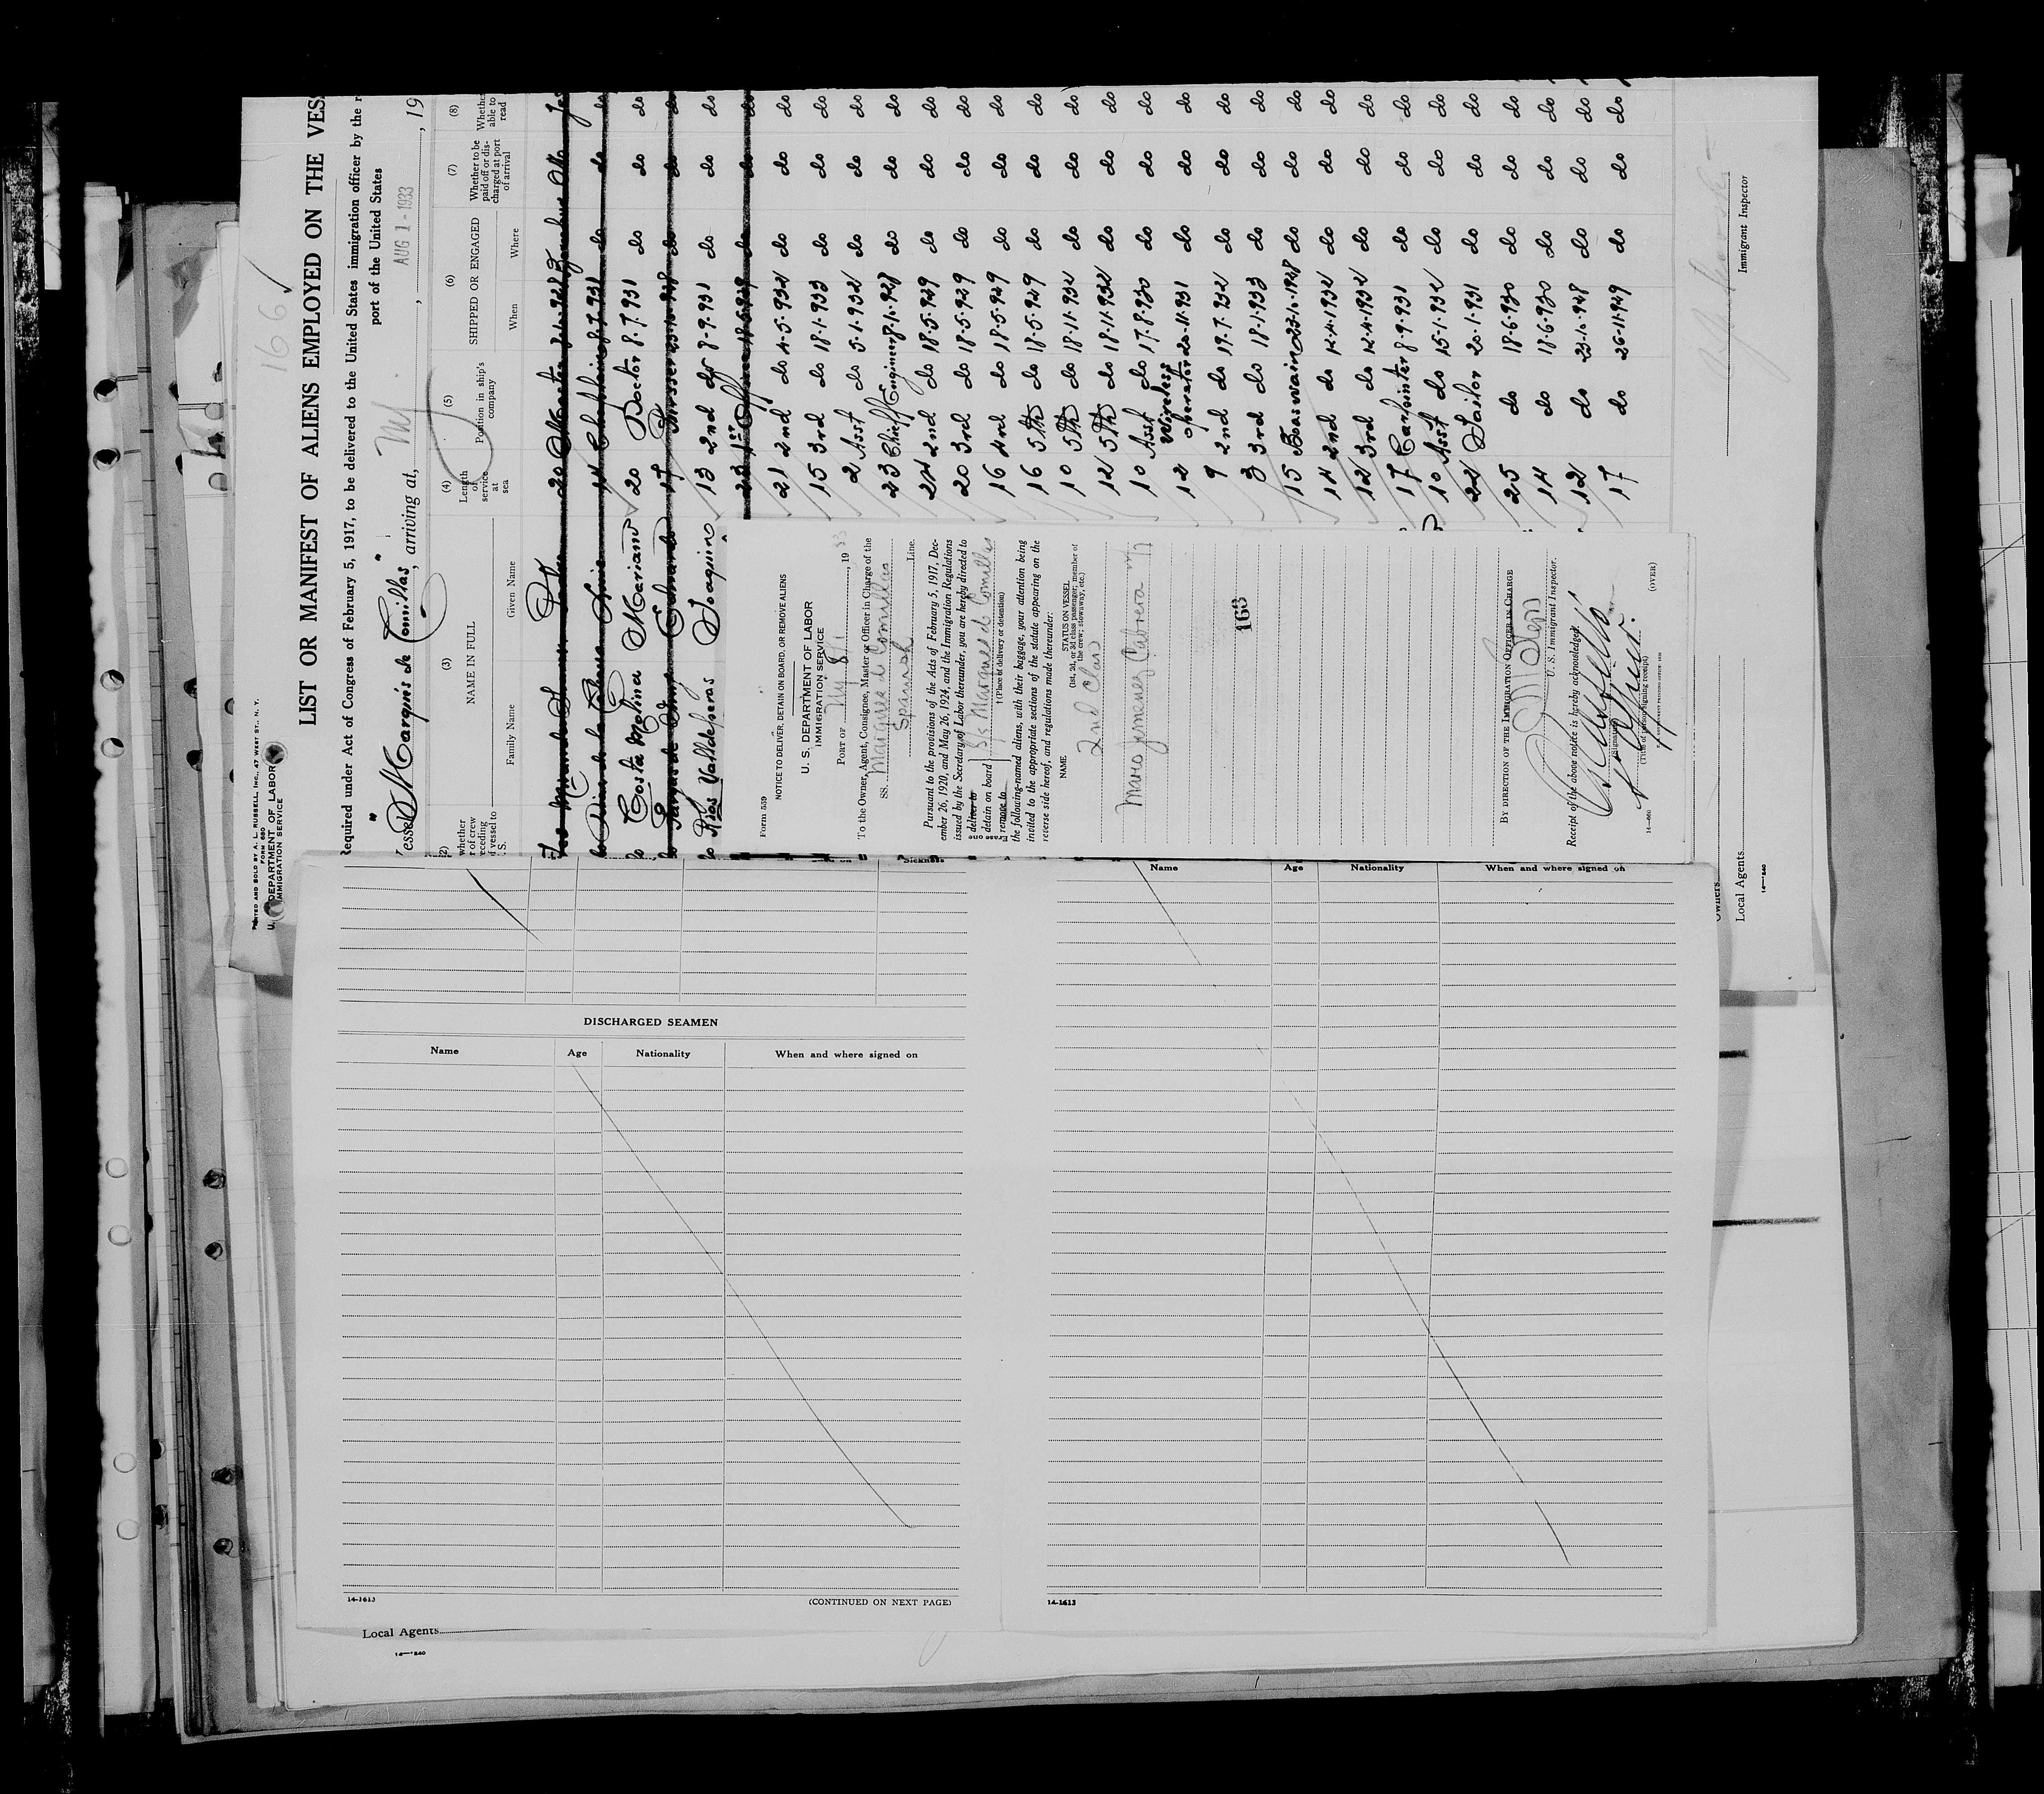 166
PRINTED AND SOLD BY A. L. RUSSELL, INC., 47 WEST ST. N. Y.
FORM 680
U. S. DEPARTMENT OF LABOR
IMMIGRATION SERVICE
LIST OR MANIFEST OF ALIENS EMPLOYED ON THE VES
Required under Act of Congress of February 5, 1917, to be delivered to the United States immigration officer by the r
port of the United States
Vessel "Marqués de Comillas", arriving at, NY, AUG 1 - 1933, 19
(2) (3) (4) (5) (6) (7) (8)
whether
r of crew
receding
d vessel to
U.S.
NAME IN FULL
Family Name Given Name
Length of service at sea
Position in ship's company
SHIPPED OR ENGAGED
When Where
Whether to be paid off or discharged at port of arrival
Whether able to read
do Costa Molina Mariano 20 Doctor 8.7.931 do do do
do Rios Valldeperas Joaquino 13 2nd do 8.9.931 do do do
21 2nd do 4.5.932 do do do
15 3rd do 18.1.933 do do do
2 Asst do 5.1.932 do do do
23 Chieff Engineer 18.1.928 do do do
24 2nd do 18.5.929 do do do
20 3rd do 18.5.929 do do do
16 4rd do 18.5.929 do do do
16 5th do 18.5.929 do do do
10 5th do 18.11.932 do do do
12 5th do 18.11.932 do do do
10 Asst do 17.8.930 do do do
12 Wireless operator 20.11.931 do do do
9 2nd do 19.7.932 do do do
3 3rd do 18.1.933 do do do
15 Boaswain 23.10.1928 do do do
14 2nd do 12.4.1932 do do do
12 3rd do 12.4.1932 do do do
17 Carpinter 8.9.931 do do do
10 Asst do 15.1.932 do do do
22 Sailor 20.1.931 do do do
25 do 18.6.930 do do do
14 do 18.6.930 do do do
12 do 23.10.928 do do do
17 do 26.11.929 do do do
Immigrant Inspector
Owners
Local Agents
14—1240
Form 559
NOTICE TO DELIVER, DETAIN ON BOARD, OR REMOVE ALIENS
U. S. DEPARTMENT OF LABOR
IMMIGRATION SERVICE
PORT OF NY 8/1, 1933
To the Owner, Agent, Consignee, Master or Officer in Charge of the
SS. Marques de Comillas
Spanish Line.
Pursuant to the provisions of the Acts of February 5, 1917, Dec-
ember 26, 1920, and May 26, 1924, and the Immigration Regulations
issued by the Secretary of Labor thereunder, you are hereby directed to
deliver to
detain on board S/S Marques de Comillas
remove to
(Place of delivery or detention)
the following-named aliens, with their baggage, your attention being
invited to the appropriate sections of the statute appearing on the
reverse side hereof, and regulations made thereunder:
NAME
STATUS ON VESSEL
(1st, 2d, or 3d class passenger; member of
the crew; stowaway, etc.)
2nd Class
Mario Jimenez Cabrera
163
BY DIRECTION OF THE IMMIGRATION OFFICER IN CHARGE
U. S. Immigrant Inspector.
Receipt of the above notice is hereby acknowledged.
(Signature)
(Title of person signing receipt)
(OVER)
Sickness
DISCHARGED SEAMEN
Name Age Nationality When and where signed on
14-1613
(CONTINUED ON NEXT PAGE)
Name Age Nationality When and where signed on
14-1613
Local Agents
14—1240